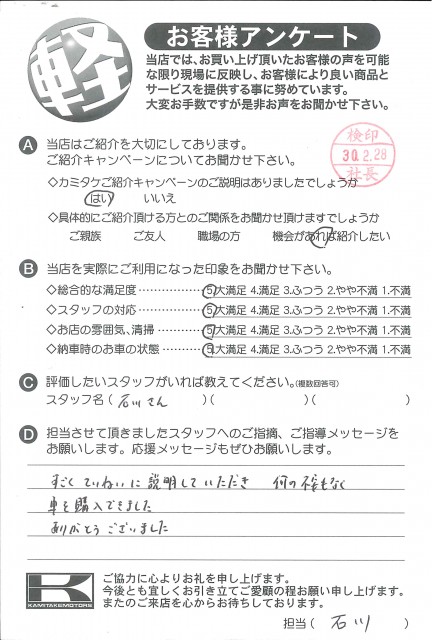 軽
お客様アンケート
当店では、お買い上げ頂いたお客様の声を可能
な限り現場に反映し、お客様により良い商品と
サービスを提供する事に努めています。
大変お手数ですが是非お声をお聞かせ下さい。
A 当店はご紹介を大切にしております。
ご紹介キャンペーンについてお聞かせ下さい。
検印
30.2.28
社長
◇カミタケご紹介キャンペーンのご説明はありましたでしょうか
はい いいえ
◇具体的にご紹介頂ける方とのご関係をお聞かせ頂けますでしょうか
ご親族 ご友人 職場の方 機会があれば紹介したい
B 当店を実際にご利用になった印象をお聞かせ下さい。
◇総合的な満足度……………5.大満足 4.満足 3.ふつう 2.やや不満 1.不満
◇スタッフの対応……………5.大満足 4.満足 3.ふつう 2.やや不満 1.不満
◇お店の雰囲気、清掃………5.大満足 4.満足 3.ふつう 2.やや不満 1.不満
◇納車時のお車の状態………5.大満足 4.満足 3.ふつう 2.やや不満 1.不満
C 評価したいスタッフがいれば教えてください。(複数回答可)
スタッフ名(石川さん)( )( )
D 担当させて頂きましたスタッフへのご指摘、ご指導メッセージを
お願いします。応援メッセージもぜひお願いします。
すごくていねいに説明していただき 何の不安もなく
車を購入できました
ありがとうございました
KAMITAKEMOTORS
ご協力に心よりお礼を申し上げます。
今後とも宜しくお引き立てご愛顧の程お願い申し上げます。
またのご来店を心からお待ちしております。
担当(石川)